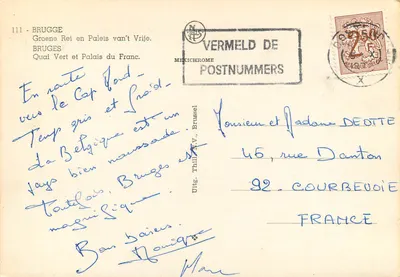 111 - BRUGGE
Groene Rei en Paleis van't Vrije.
BRUGES
Quai Vert et Palais du Franc.
MEXICHROME
VERMELD DE
POSTNUMMERS
X
En route
vers le Cap Nord-
Temps gris et froid-
la Belgique est un
pays bien maussade.
Toutefois, Bruges est
magnifique.
Bons baisers.
Monique
Uitg. Thill, N.V., Brussel
Monsieur et Madame DEOTTE
45, rue Danton
92. COURBEVOIE
FRANCE